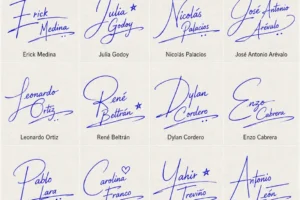 Erick
Medina
Julia
Godoy
Nicolás
Palacios
José Antonio
Arévalo
Erick Medina
Julia Godoy
Nicolás Palacios
José Antonio Arévalo
Leonardo
Ortiz
René
Beltrán
Dylan
Cordero
Enzo
Cabrera
Leonardo Ortiz
René Beltrán
Dylan Cordero
Enzo Cabrera
Pablo
Lara
Carolina
Franco
Yahir
Treviño
Antonio
León